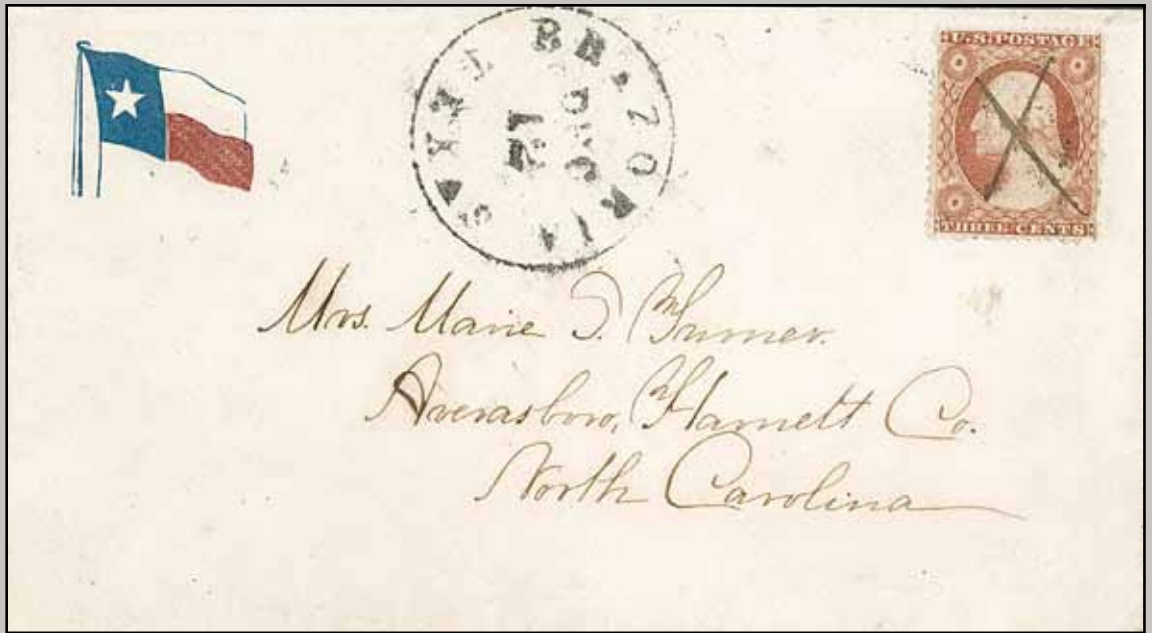 BRAZORIA TEXAS
DEC
12
U.S. POSTAGE
THREE CENTS
Mrs. Marie
Averasboro, Harnett Co.
North Carolina